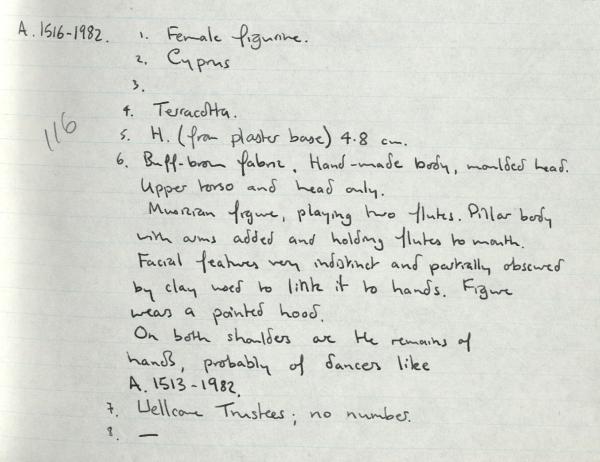 A.1516-1982. 1. Female figurine.
2. Cyprus
3.
4. Terracotta.
116
5. H. (from plaster base) 4.8 cm.
6. Buff-brown fabric. Hand-made body, moulded head.
Upper torso and head only.
Musician figure, playing two flutes. Pillar body
with arms added and holding flutes to mouth.
Facial features very indistinct and partially obscured
by clay used to link it to hands. Figure
wears a pointed hood.
On both shoulders are the remains of
hands, probably of dancers like
A.1513-1982.
7. Wellcome Trustees; no number.
8. —